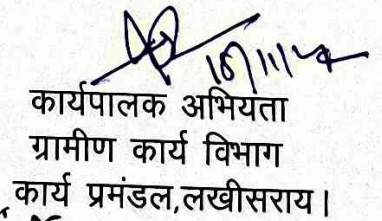 कार्यपालक अभियता
ग्रामीण कार्य विभाग
कार्य प्रमंडल,लखीसराय।